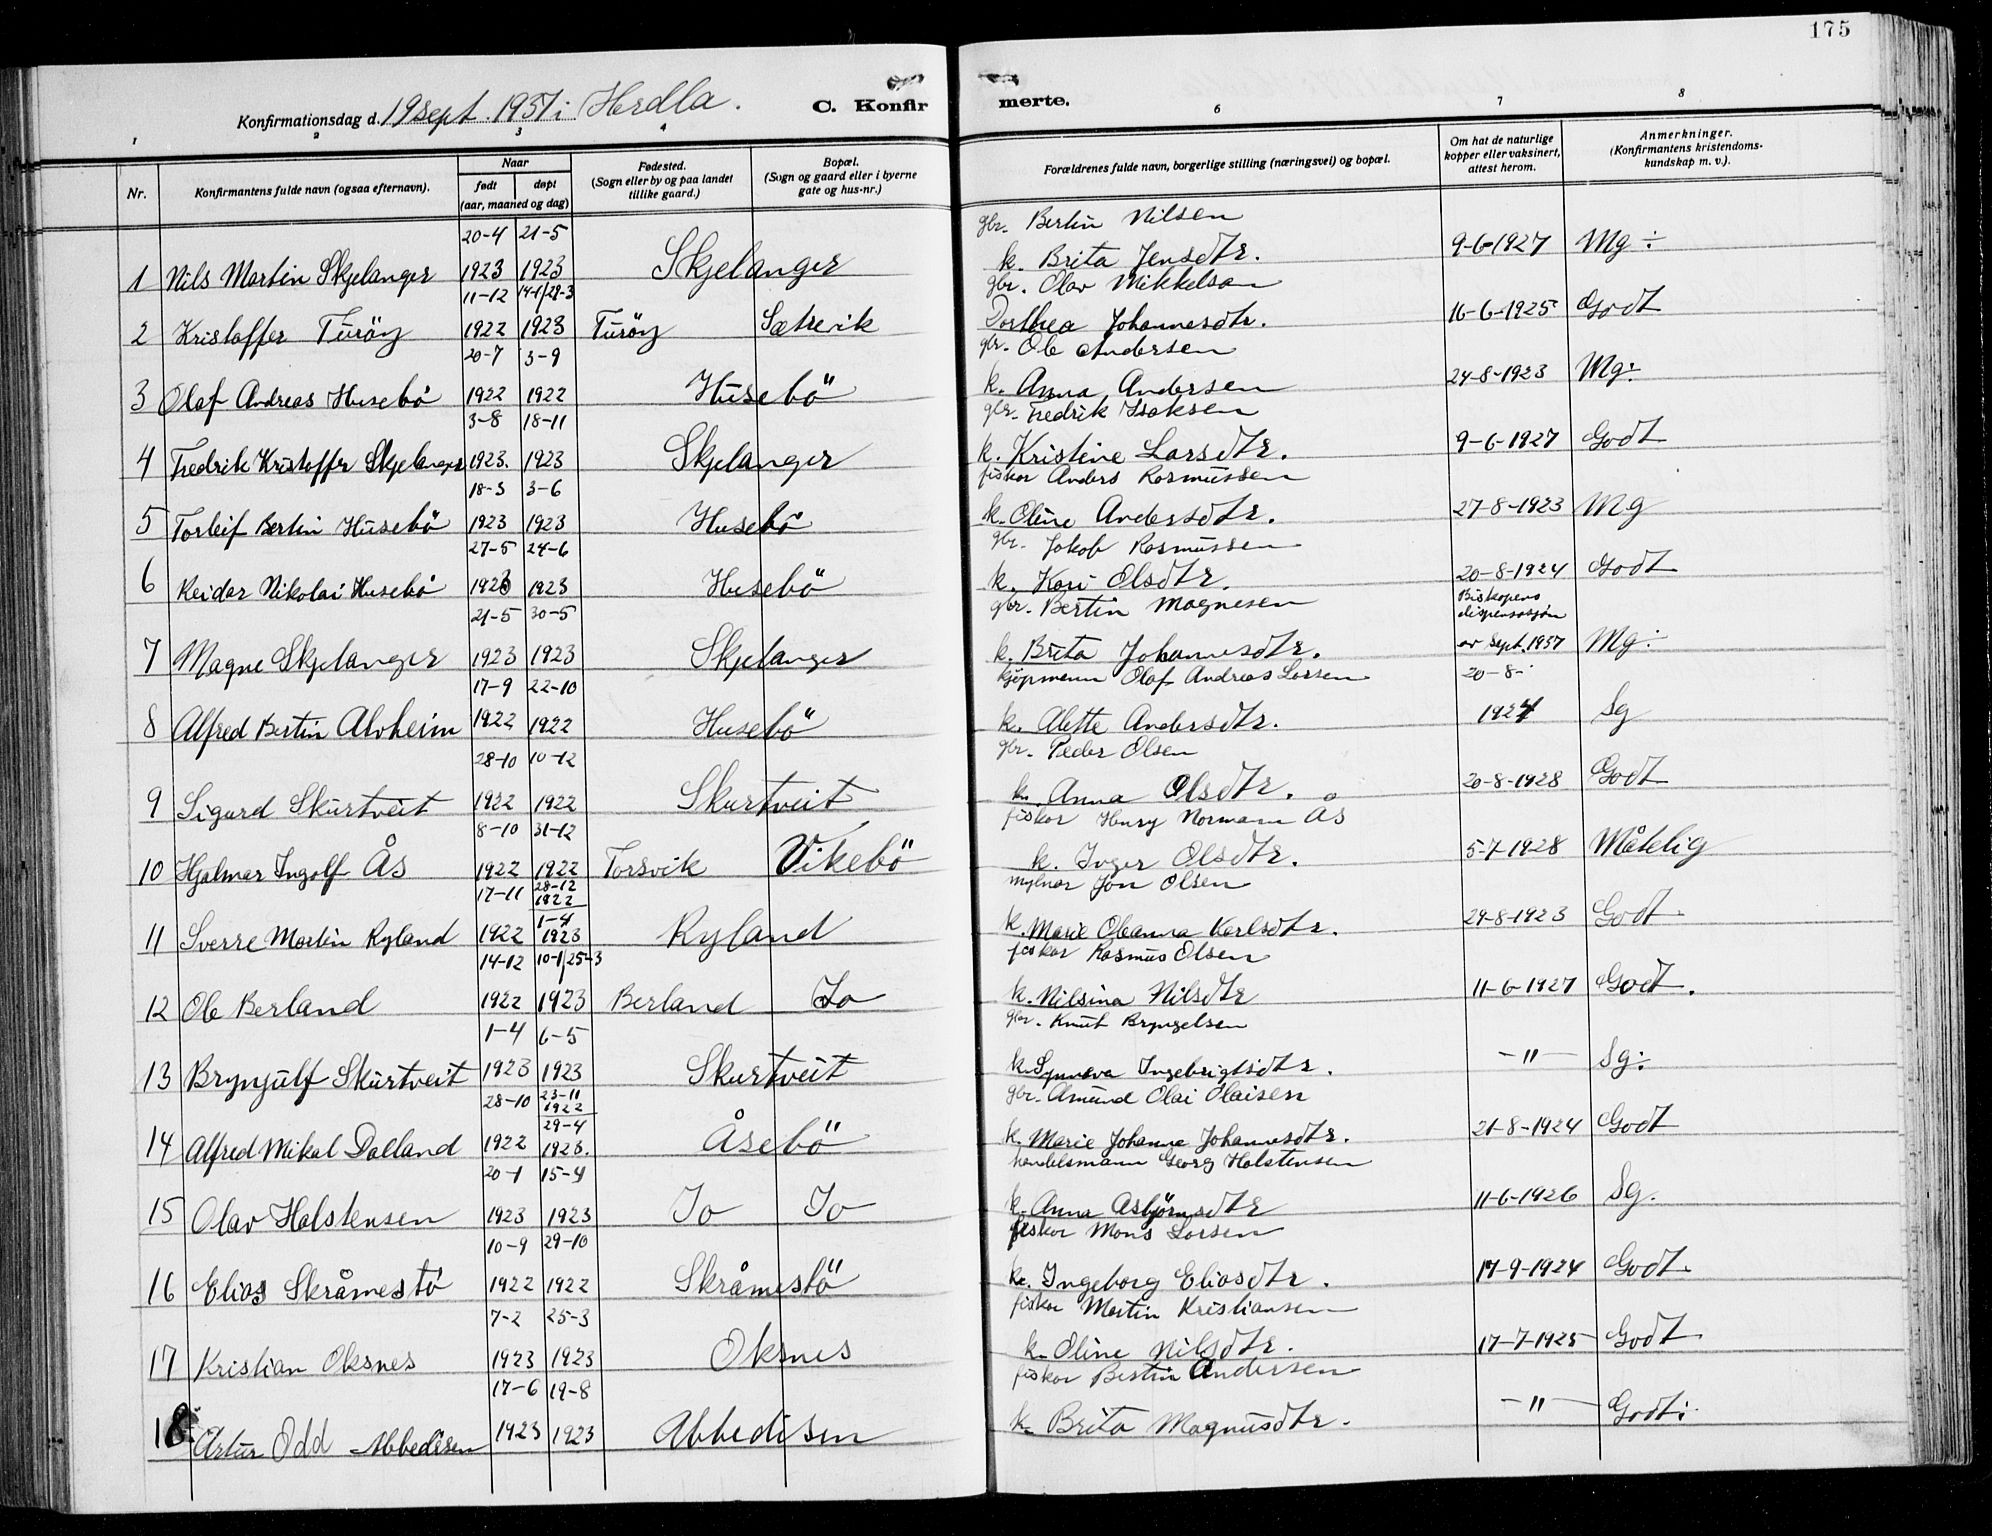 175
Konfirmationsdag d. 19 sept. 1937 i Herdla.
C. Konfirmerte.
1 2 3 4 6 7 8
Nr.
Konfirmantens fulde navn (ogsaa efternavn).
Naar
født døpt
(aar, maaned og dag)
Fødested.
(Sogn eller by og paa landet
tillike gaard.)
Bopæl.
(Sogn og gaard eller i byerne
gate og hus-nr.)
Forældrenes fulde navn, borgerlige stilling (næringsvei) og bopæl.
Om hat de naturlige
kopper eller vaksinert,
attest herom.
Anmerkninger.
(Konfirmantens kristendoms-
kundskap m. v.).
20-4 21-5 gbr. Bertin Nilsen
1 Nils Martin Skjelanger 1923 1923 Skjelanger k. Brita Jensdtr. 9-6-1927 Mg÷
11-12 14-1/28-3 gbr. Olav Mikkelsen
2 Kristoffer Turöy 1922 1923 Turöy Sætrevik Dorthea Johannesdtr. 16-6-1925 Godt
20-7 3-9 gbr. Ole Andersen
3 Olaf Andreas Husebö 1922 1922 Husebö k. Anna Andersen 24-8-1923 Mg÷
3-8 18-11 gbr. Fredrik Isaksen
4 Fredrik Kristoffer Skjelanger 1923. 1923 Skjelanger k. Kristine Larsdtr. 9-6-1927 Godt
18-3 3-6 fiskar Anders Rasmussen
5 Torleif Bertin Husebö 1923 1923 Husebö k. Oline Andersdtr. 27-8-1923 Mg
27-5 24-6 gbr. Jakob Rasmussen
6 Reidar Nikolai Husebö 1923 1923 Husebö k. Kari Olsdtr. 20-8-1924 Godt
21-5 30-5 gbr. Bertin Magnesen Biskopens
dispensasjon
7 Magne Skjelanger 1923 1923 Skjelanger k. Brita Johannesdtr. av Sept. 1937 Mg÷
17-9 22-10 kjøpmann Olaf Andreas Larsen 20-8-
8 Alfred Bertin Alvheim 1922 1922 Husebö k. Alette Andersdtr. 1924 Sg
28-10 10-12 gbr. Peder Olsen
9 Sigurd Skurtveit 1922 1922 Skurtveit k. Anna Olsdtr. 20-8-1928 Godt
8-10 31-12 fiskar Henry Normann Ås
10 Hjalmar Ingolf Ås 1922 1922 Torsvik Vikebö k. Inger Olsdtr. 5-7-1928 Måtelig
17-11 28-12 1922 mylnar Jon Olsen
11 Sverre Martin Ryland 1922 1-4 1923 Ryland k. Marie Oleanna Karlsdtr. 29-8-1923 Godt
14-12 10-1/25-3 fiskar Rasmus Olsen
12 Ole Berland 1922 1923 Berland Io k. Nilsina Nilsdtr 11-6-1927 Godt.
1-4 6-5 gbr. Knut Bryngelsen
13 Bryngulf Skurtveit 1923 1923 Skurtveit k. Synneva Ingebrigtsdtr. —"— Sg÷
28-10 23-11 1922 gbr. Amund Olai Olaisen
14 Alfred Mikal Dalland 1922 29-4 1923. Åsebö k. Marie Johanne Johannesdtr. 21-8-1924 Godt
20-1 15-4 handelsmann Georg Halstensen
15 Olav Halstensen 1923 1923 Io Io k. Anna Asbjörnsdtr 11-6-1926 Sg.
10-9 29-10 fiskar Mons Larsen
16 Elias Skråmestö 1922 1922 Skråmestö k. Ingeborg Eliasdtr. 17-9-1924 Godt.
7-2 25-3 fiskar Martin Kristiansen
17 Kristian Oksnes 1923 1923 Oksnes k. Oline Nilsdtr. 17-7-1925 Godt
17-6 19-8 fiskar Bertin Andersen
18 Artur Odd Abbedisen 1923 1923 Abbedisen k. Brita Magnusdtr. —"— Godt÷